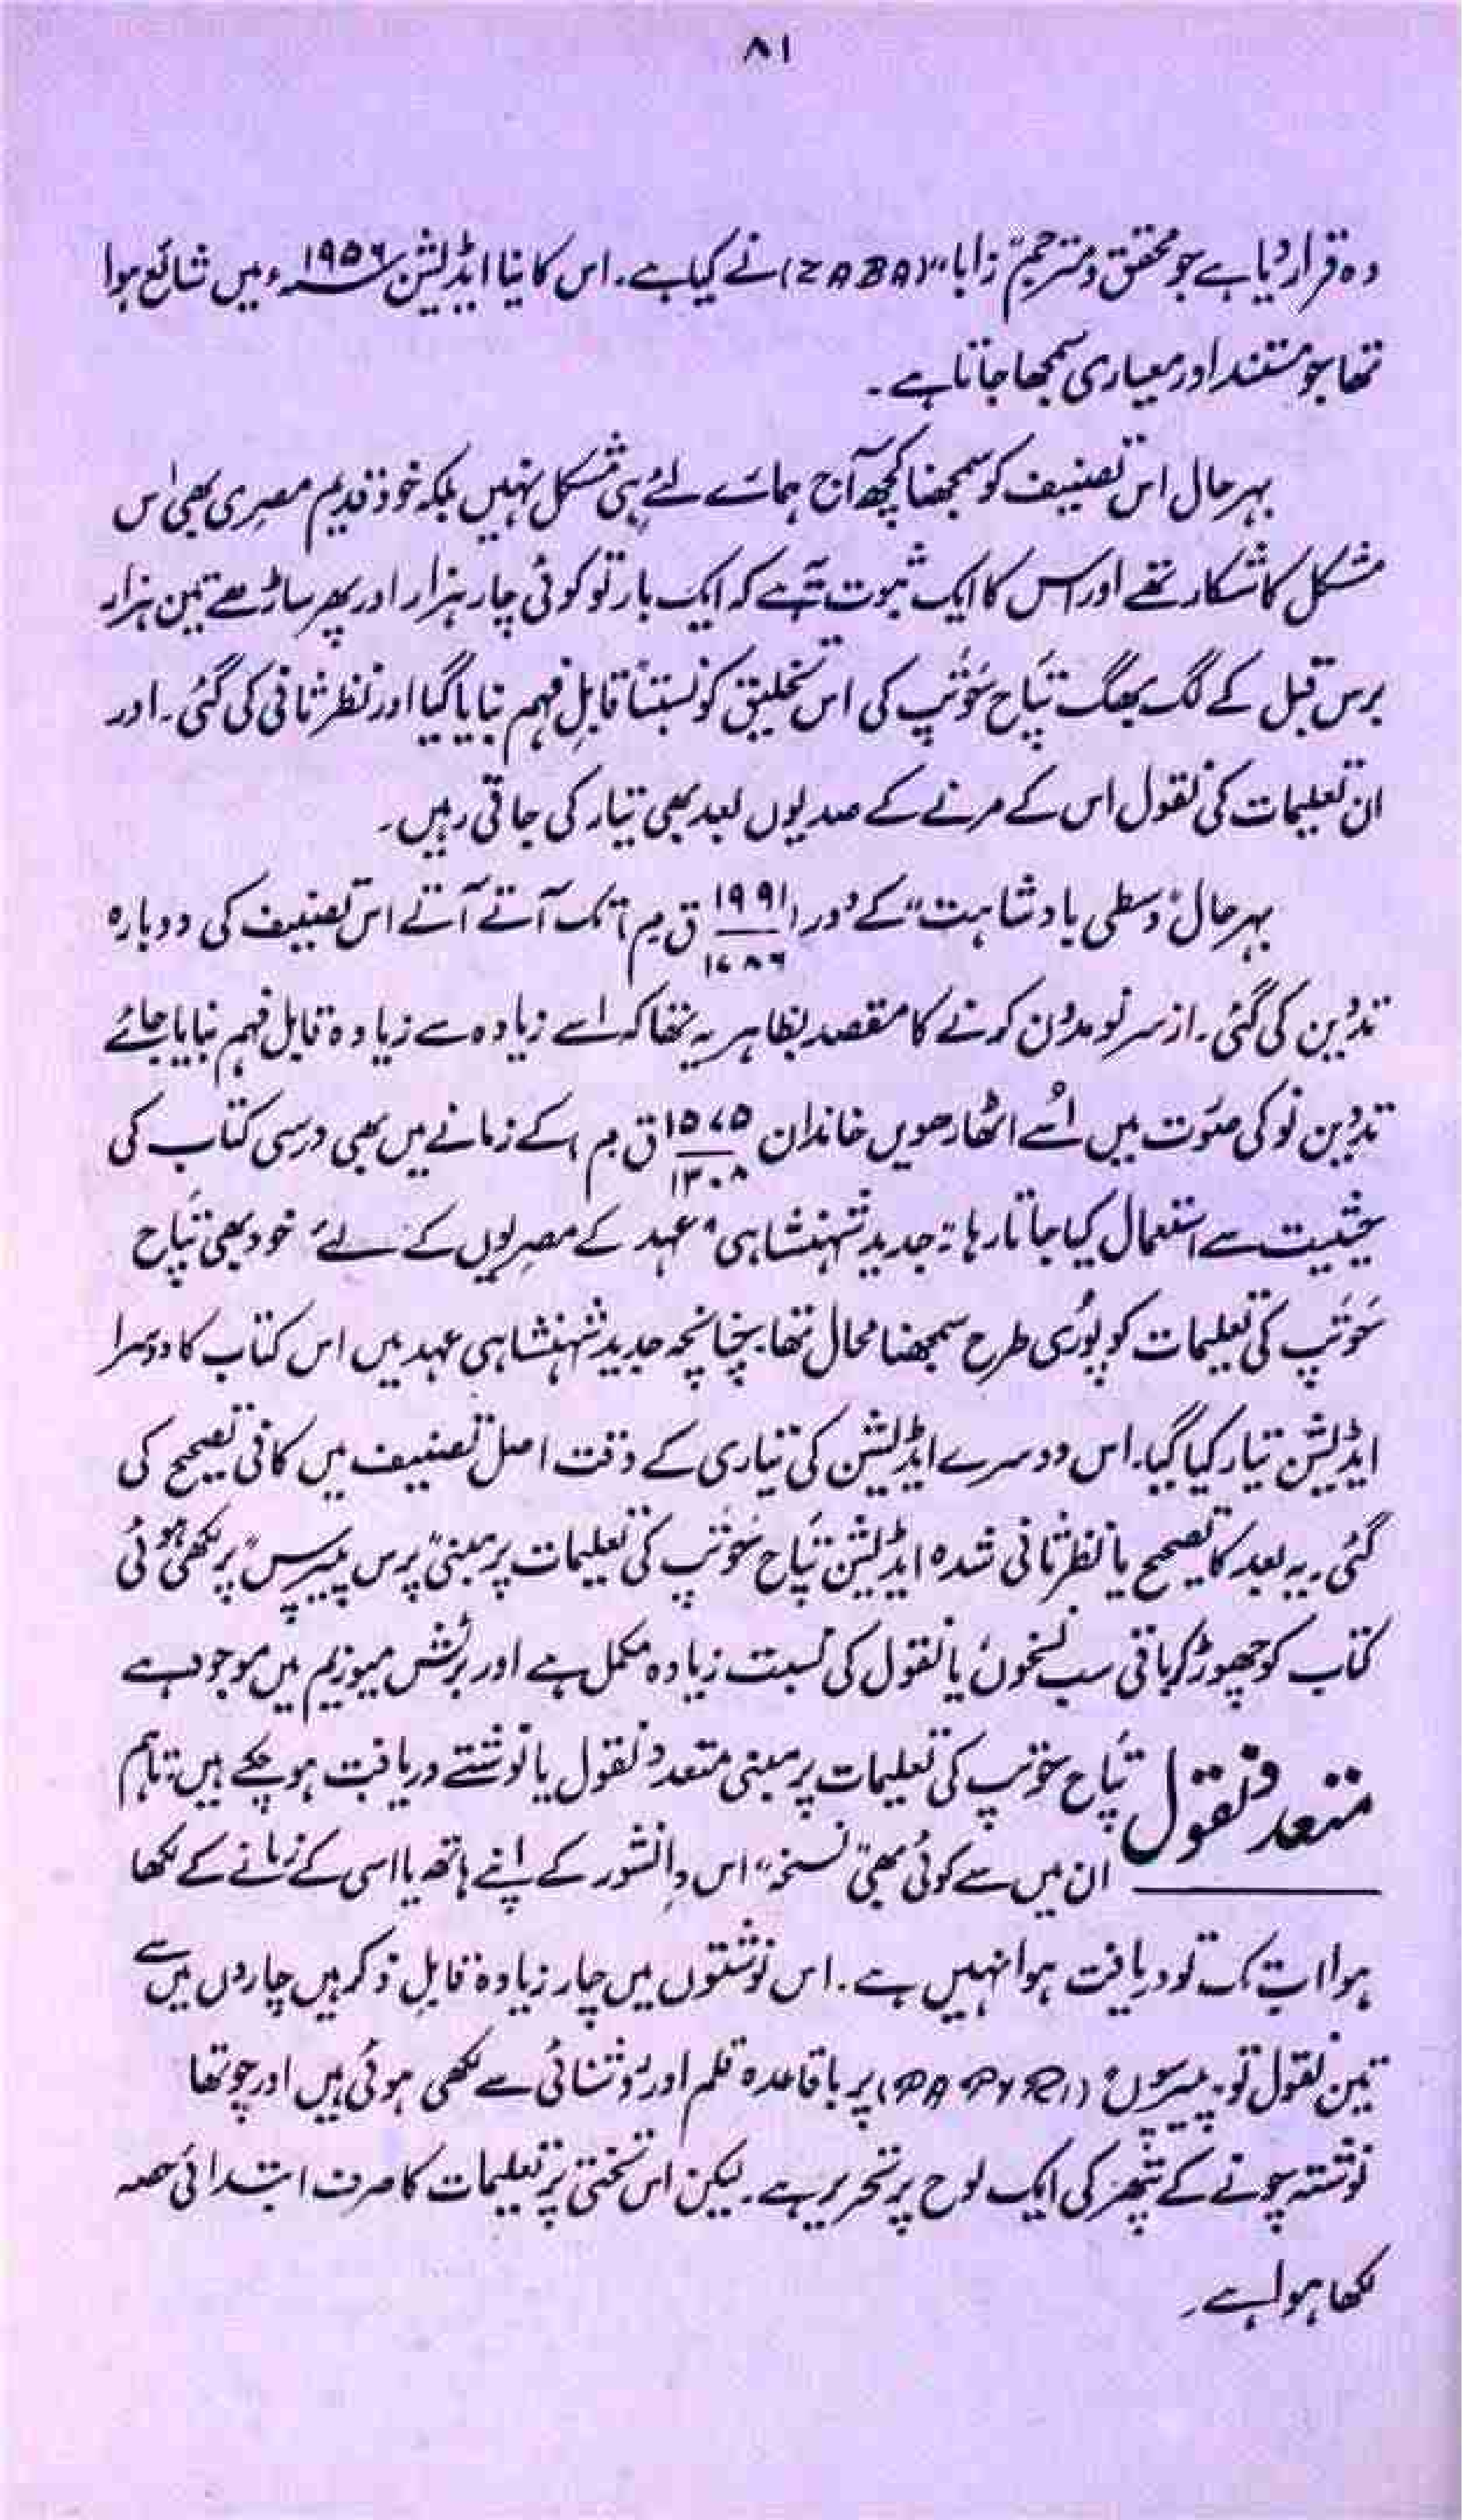 ۸۱
وہ قرار دیا ہے جو محقق و مترجم "زابا" (ZABA) نے کیا ہے۔ اس کا نیا ایڈیشن ۱۹۵۶ء میں شائع ہوا
تھا جو مستند اور معیاری سمجھا جاتا ہے۔
بہرحال اس تصنیف کو سمجھنا کچھ آج ہمارے لئے ہی مشکل نہیں بلکہ خود قدیم مصری بھی اس
مشکل کا شکار تھے اور اس کا ایک ثبوت یہ ہے کہ ایک بار تو کوئی چار ہزار اور پھر ساڑھے تین ہزار
برس قبل کے لگ بھگ تپاح حوتپ کی اس تخلیق کو نسبتاً قابلِ فہم بنایا گیا اور نظر ثانی کی گئی۔ اور
ان تعلیمات کی نقول اس کے مرنے کے صدیوں بعد بھی تیار کی جاتی رہیں۔
بہرحال "وسطی بادشاہت" کے دور (۱۹۹۱/۱۷۸۶ ق م) تک آتے آتے اس تصنیف کی دوبارہ
تدوین کی گئی۔ از سر نو مدون کرنے کا مقصد بظاہر یہ تھا کہ اسے زیادہ سے زیادہ قابل فہم بنایا جائے
تدوین نو کی صورت میں اُسے اٹھارھویں خاندان ۱۵۷۵/۱۳۰۸ ق م) کے زمانے میں بھی درسی کتاب کی
حیثیت سے استعمال کیا جاتا رہا۔ "جدید شہنشاہی" عہد کے مصریوں کے لئے خود بھی تپاح
حوتپ کی تعلیمات کو پُوری طرح سمجھنا محال تھا۔ چنانچہ جدید شہنشاہی عہد میں اس کتاب کا دوسرا
ایڈیشن تیار کیا گیا۔ اس دوسرے ایڈیشن کی تیاری کے وقت اصل تصنیف میں کافی تصحیح کی
گئی۔ یہ بعد کا تصحیح یا نظر ثانی شدہ ایڈیشن تپاح حوتپ کی تعلیمات پر مبنی "پرس پیپرس" پر لکھی ہوئی
کتاب کو چھوڑ کر باقی سب نسخوں یا نقول کی نسبت زیادہ مکمل ہے اور برٹش میوزیم میں موجود ہے
متعدد نقول تپاح حوتپ کی تعلیمات پر مبنی متعدد نقول یا نوشتے دریافت ہو چکے ہیں۔ تاہم
ان میں سے کوئی بھی "نسخہ" اس دانشور کے اپنے ہاتھ یا اسی کے زمانے کے لکھا
ہوا اب تک تو دریافت ہوا نہیں ہے۔ اس نوشتوں میں چار زیادہ قابلِ ذکر ہیں چاروں میں سے
تین نقول تو "پیپرسوں" (PAPYRI) پر باقاعدہ قلم اور روشنائی سے لکھی ہوئی ہیں اور چوتھا
نوشتہ چونے کے پتھر کی ایک لوح پر تحریر ہے۔ لیکن اس تختی پر تعلیمات کا صرف ابتدائی حصہ
لکھا ہوا ہے۔